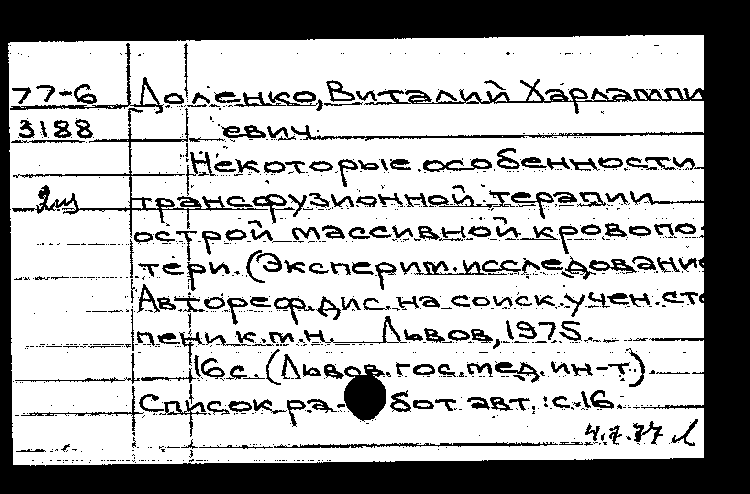 77-6 Доленко, Виталий Харлампи
3188 евич.
Некоторые особенности
2 трансфузионной терапии
острой массивной кровопо-
тери. (Эксперим. исследование
Автореф. дис. на соиск. учен. сте
пени к.м.н. Львов, 1975.
16 с. (Львов. гос. мед. ин-т).
Список ра- бот авт.: с. 16.
4.7.77